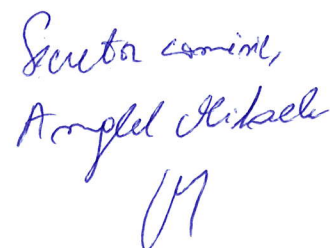 Secretar comisie,
Anghel Mihaela